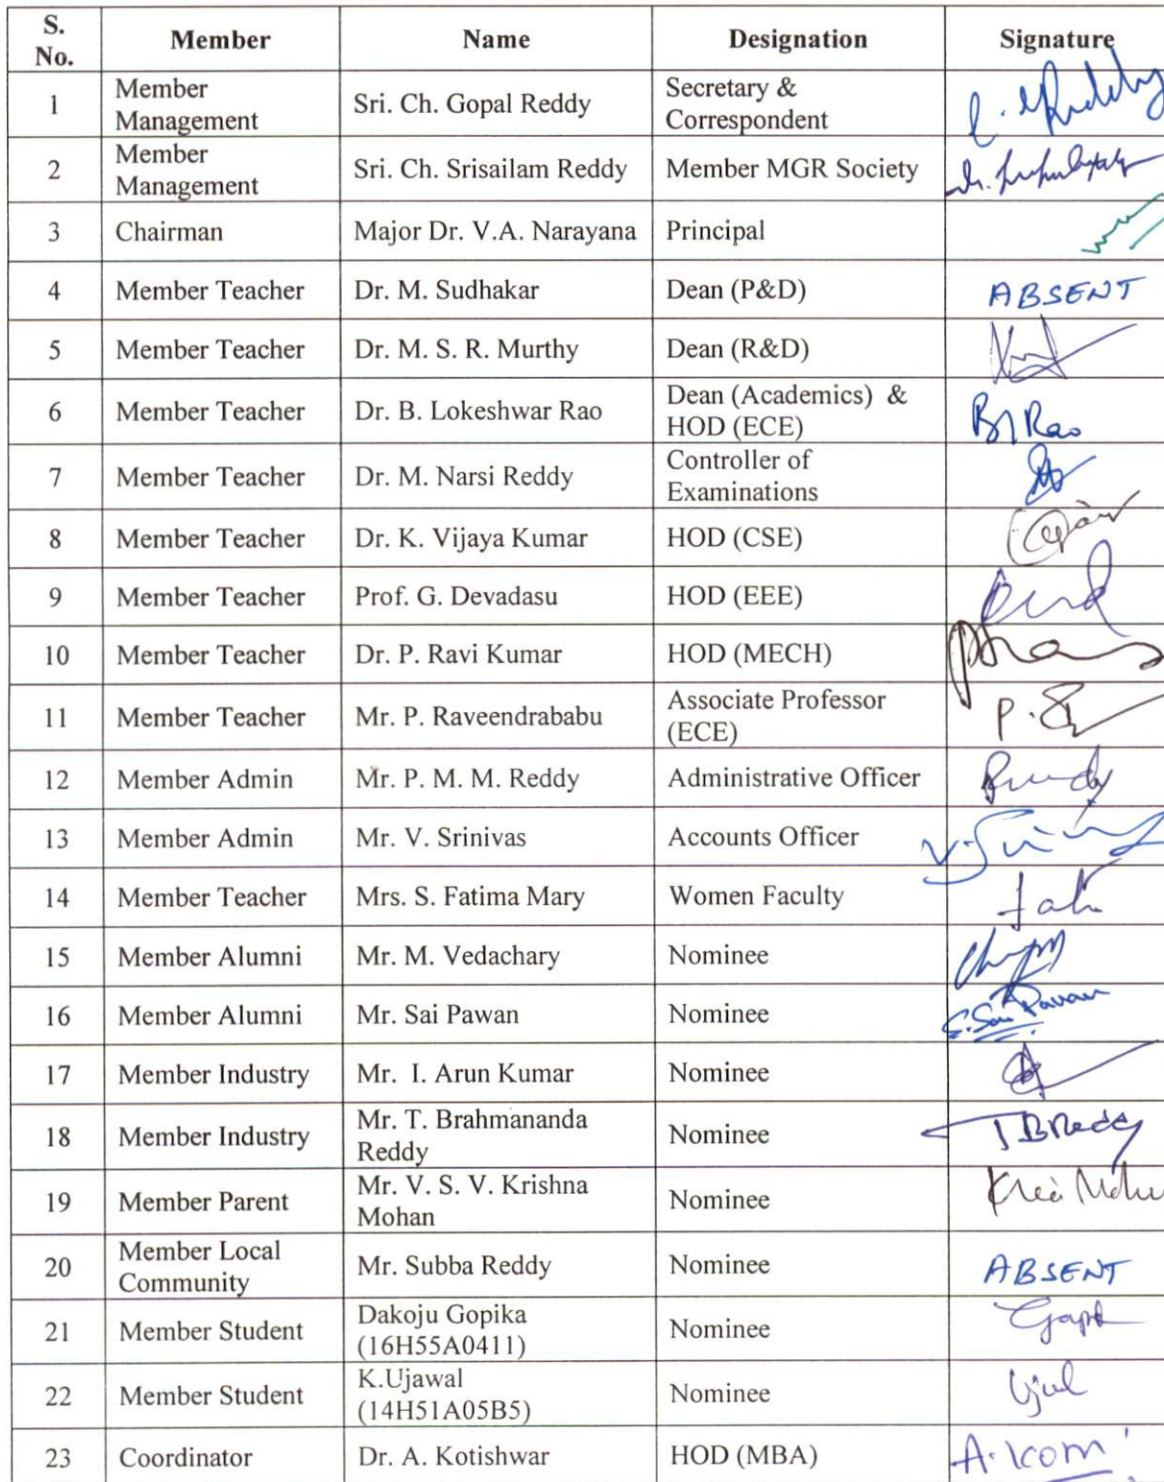 S. No. Member Name Designation Signature
1 Member Management Sri. Ch. Gopal Reddy Secretary & Correspondent
2 Member Management Sri. Ch. Srisailam Reddy Member MGR Society
3 Chairman Major Dr. V.A. Narayana Principal
4 Member Teacher Dr. M. Sudhakar Dean (P&D) ABSENT
5 Member Teacher Dr. M. S. R. Murthy Dean (R&D)
6 Member Teacher Dr. B. Lokeshwar Rao Dean (Academics) & HOD (ECE)
7 Member Teacher Dr. M. Narsi Reddy Controller of Examinations
8 Member Teacher Dr. K. Vijaya Kumar HOD (CSE)
9 Member Teacher Prof. G. Devadasu HOD (EEE)
10 Member Teacher Dr. P. Ravi Kumar HOD (MECH)
11 Member Teacher Mr. P. Raveendrababu Associate Professor (ECE)
12 Member Admin Mr. P. M. M. Reddy Administrative Officer
13 Member Admin Mr. V. Srinivas Accounts Officer
14 Member Teacher Mrs. S. Fatima Mary Women Faculty
15 Member Alumni Mr. M. Vedachary Nominee
16 Member Alumni Mr. Sai Pawan Nominee
17 Member Industry Mr. I. Arun Kumar Nominee
18 Member Industry Mr. T. Brahmananda Reddy Nominee
19 Member Parent Mr. V. S. V. Krishna Mohan Nominee
20 Member Local Community Mr. Subba Reddy Nominee ABSENT
21 Member Student Dakoju Gopika (16H55A0411) Nominee
22 Member Student K.Ujawal (14H51A05B5) Nominee
23 Coordinator Dr. A. Kotishwar HOD (MBA)